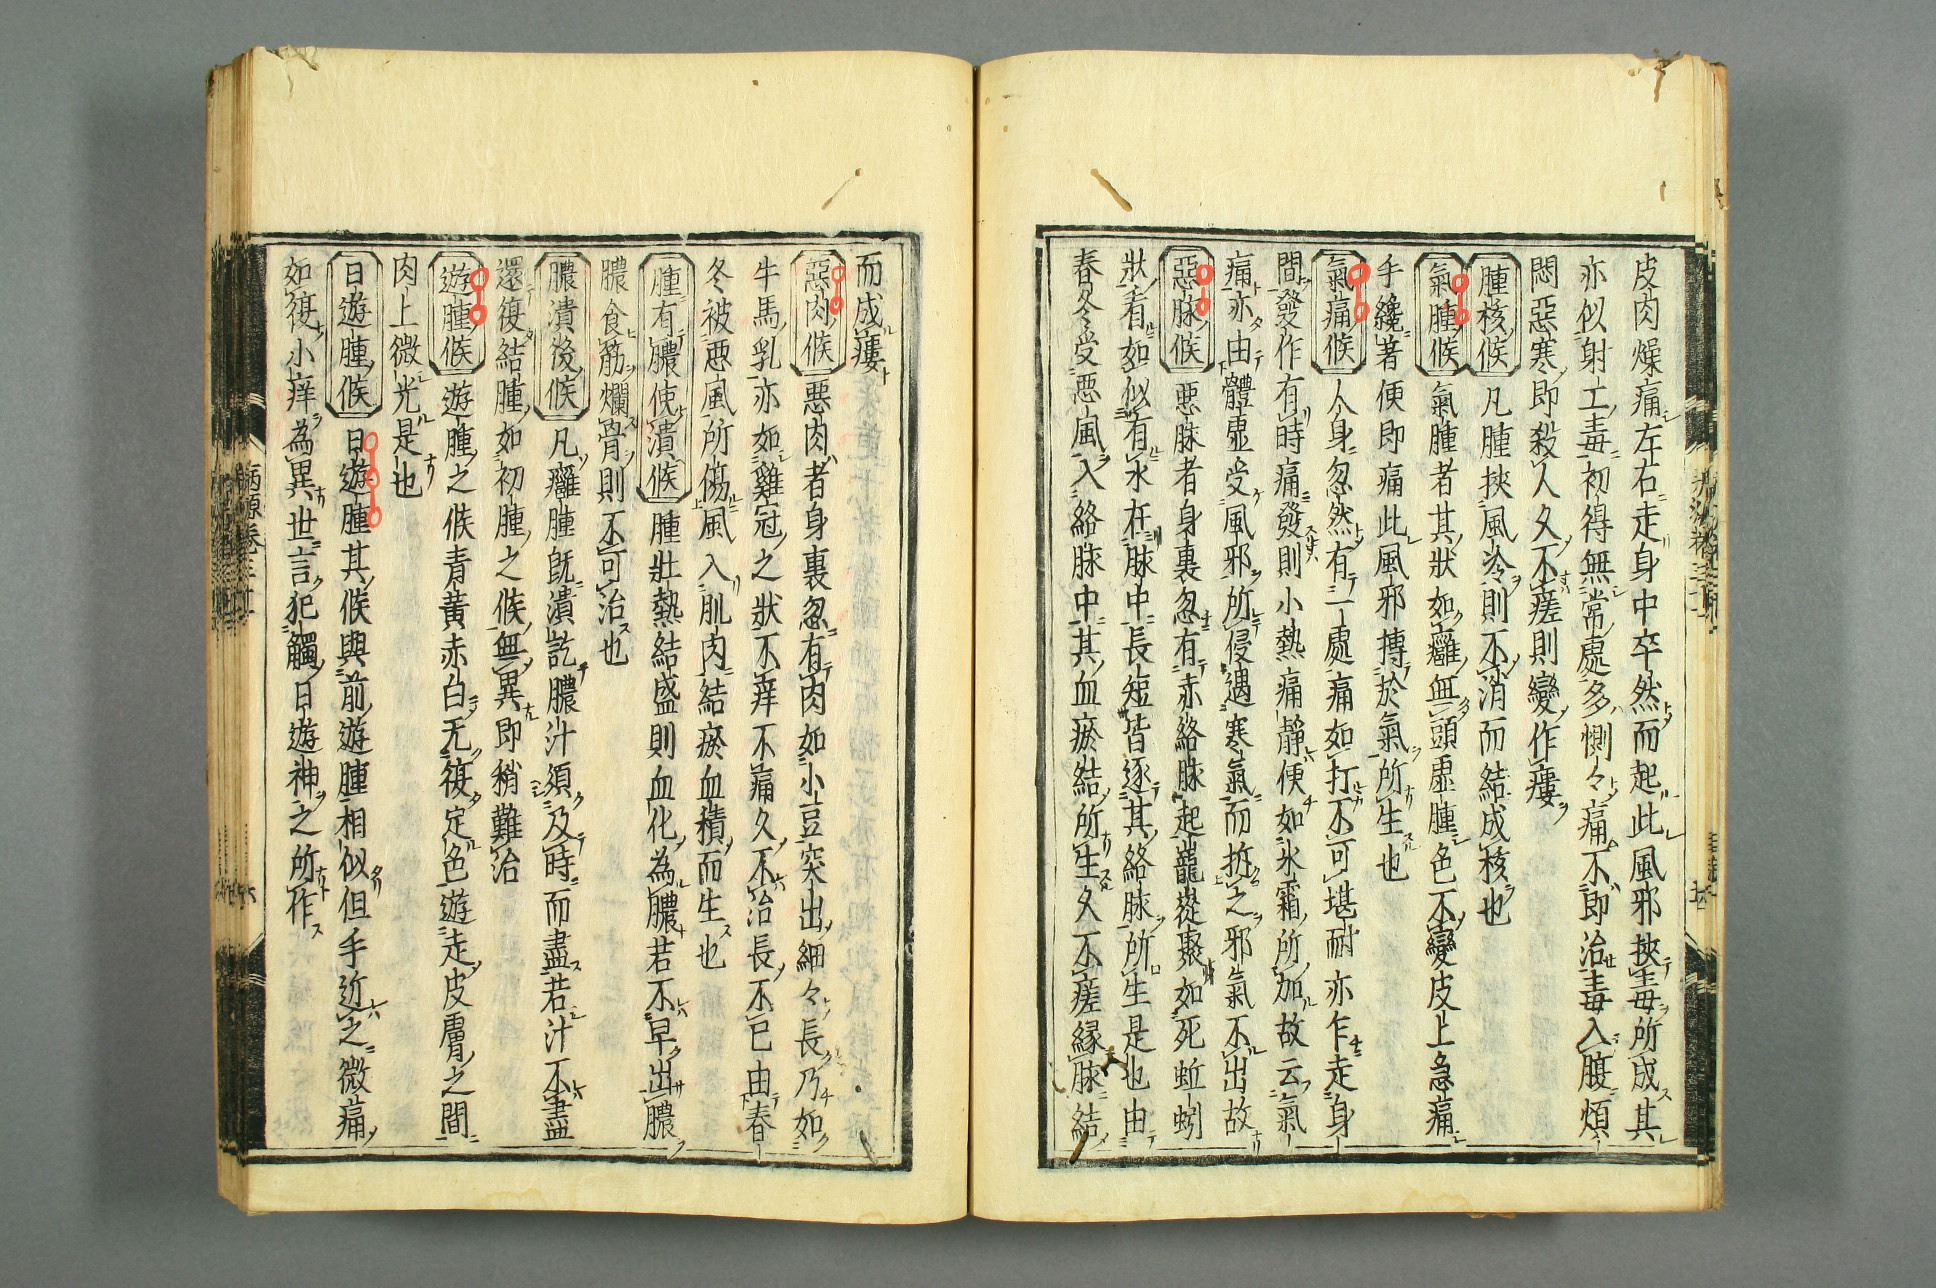 皮肉燥痛左右走身中卒然而起此風邪挾毒所成其
亦似射工毒初得無常處多惻々痛不即治毒入腹煩
悶惡寒即殺人久不瘥則變作瘻
腫核候 凡腫挾風冷則不消而結成核也
氣腫候 氣腫者其狀如癰無頭虛腫色不變皮上急痛
手纔著便即痛此風邪搏於氣所生也
氣痛候 人身忽然有一處痛如打不可堪耐亦乍走身
間發作有時痛發則小熱痛靜便如氷霜所加故云氣
痛亦由體虛受風邪所侵遇寒氣而折之邪氣不出故
惡脉候 悪脉者身裏忽有赤絡脉起蘢嵸聚如死蚯蚓
狀看如似有水在脉中長短皆逐其絡脉所生是也由
春冬受悪風入絡脉中其血瘀結所生久不瘥緣脉結
而成瘻
惡肉候 悪肉者身裏忽有肉如小豆突出細々長乃如
牛馬乳亦如雞冠之狀不痒不痛久不治長不已由春
冬被悪風所傷風入肌肉結瘀血積而生也
腫有膿使潰候 腫壯熱結盛則血化為膿若不早出膿
膿食筋爛骨則不可治也
膿潰後候 凡癰腫旣潰訖膿汁須及時而盡若汁不盡
還復結腫如初腫之候無異即稍難治
遊腫候 遊腫之候青黃赤白无復定色遊走皮膚之間
肉上微光是也
日遊腫候 日遊腫其候與前遊腫相似但手近之微痛
如復小痒為異世言犯觸日遊神之所作
病源卷三十一
六